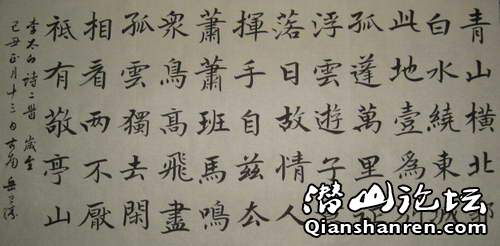 青山橫北郭
白水繞東城
此地壹為
孤蓬萬里征
浮雲遊子
落日故情人
揮手自茲去
蕭蕭班馬鳴
眾鳥高飛盡
孤雲獨去閑
相看兩不厭
祗有敬亭山
李太白詩二首 歲
己丑正月十三日
潜山论坛
Qianshanren.com